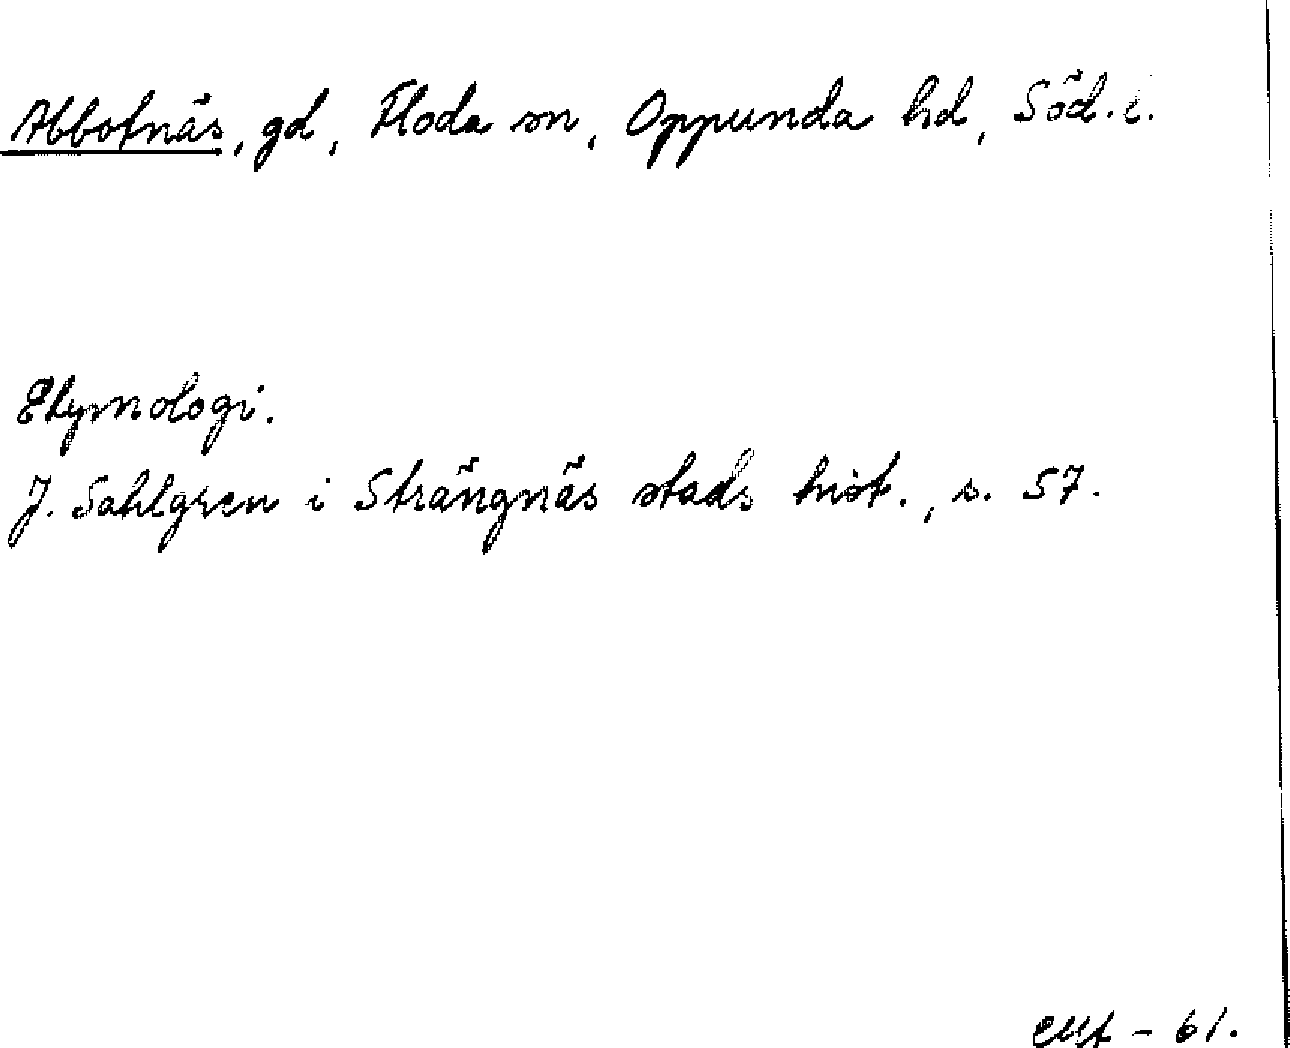 Abbotnäs, gd, Floda sn, Oppunda hd, Söd. l.
Etymologi.
J. Sahlgren i Strängnäs stads hist., s. 57.
- 61.